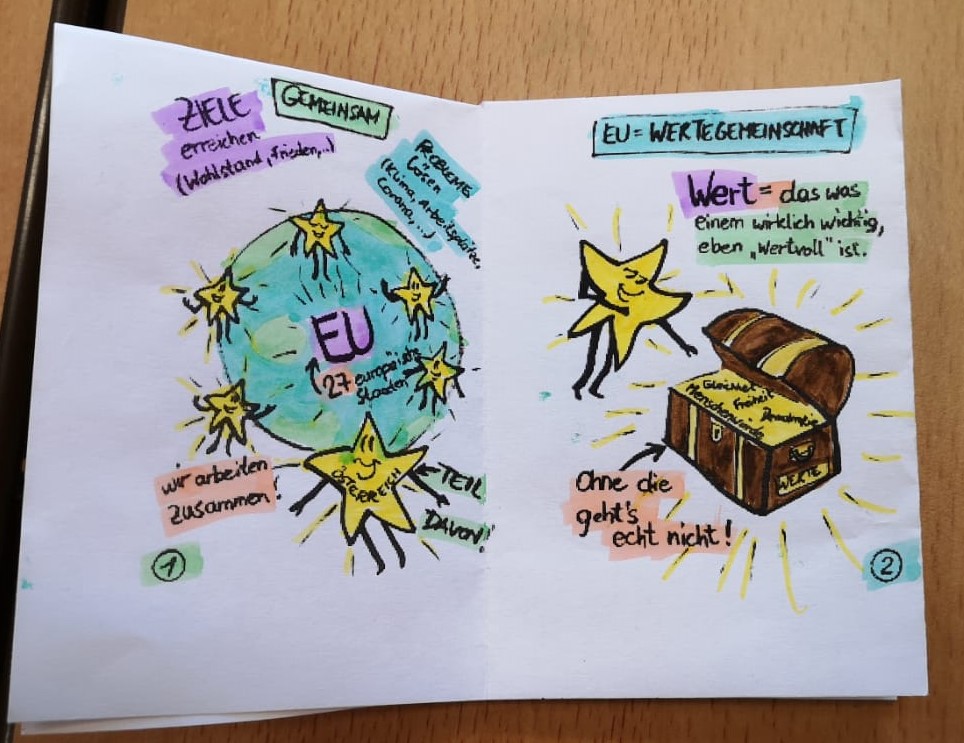 GEMEINSAM
ZIELE
erreichen
(Wohlstand, Frieden,..)
PROBLEME
lösen
(Klima, Arbeitsplätze,
Corona,...)
EU
27 europäische
Staaten
ÖSTERREICH
TEIL
DAVON!
wir arbeiten
zusammen!
1
EU = WERTEGEMEINSCHAFT
Wert = das was
einem wirklich wichtig,
eben „Wertvoll" ist.
Gleichheit
Freiheit
Menschenwürde
Demokratie
WERTE
Ohne die
geht's
echt nicht!
2